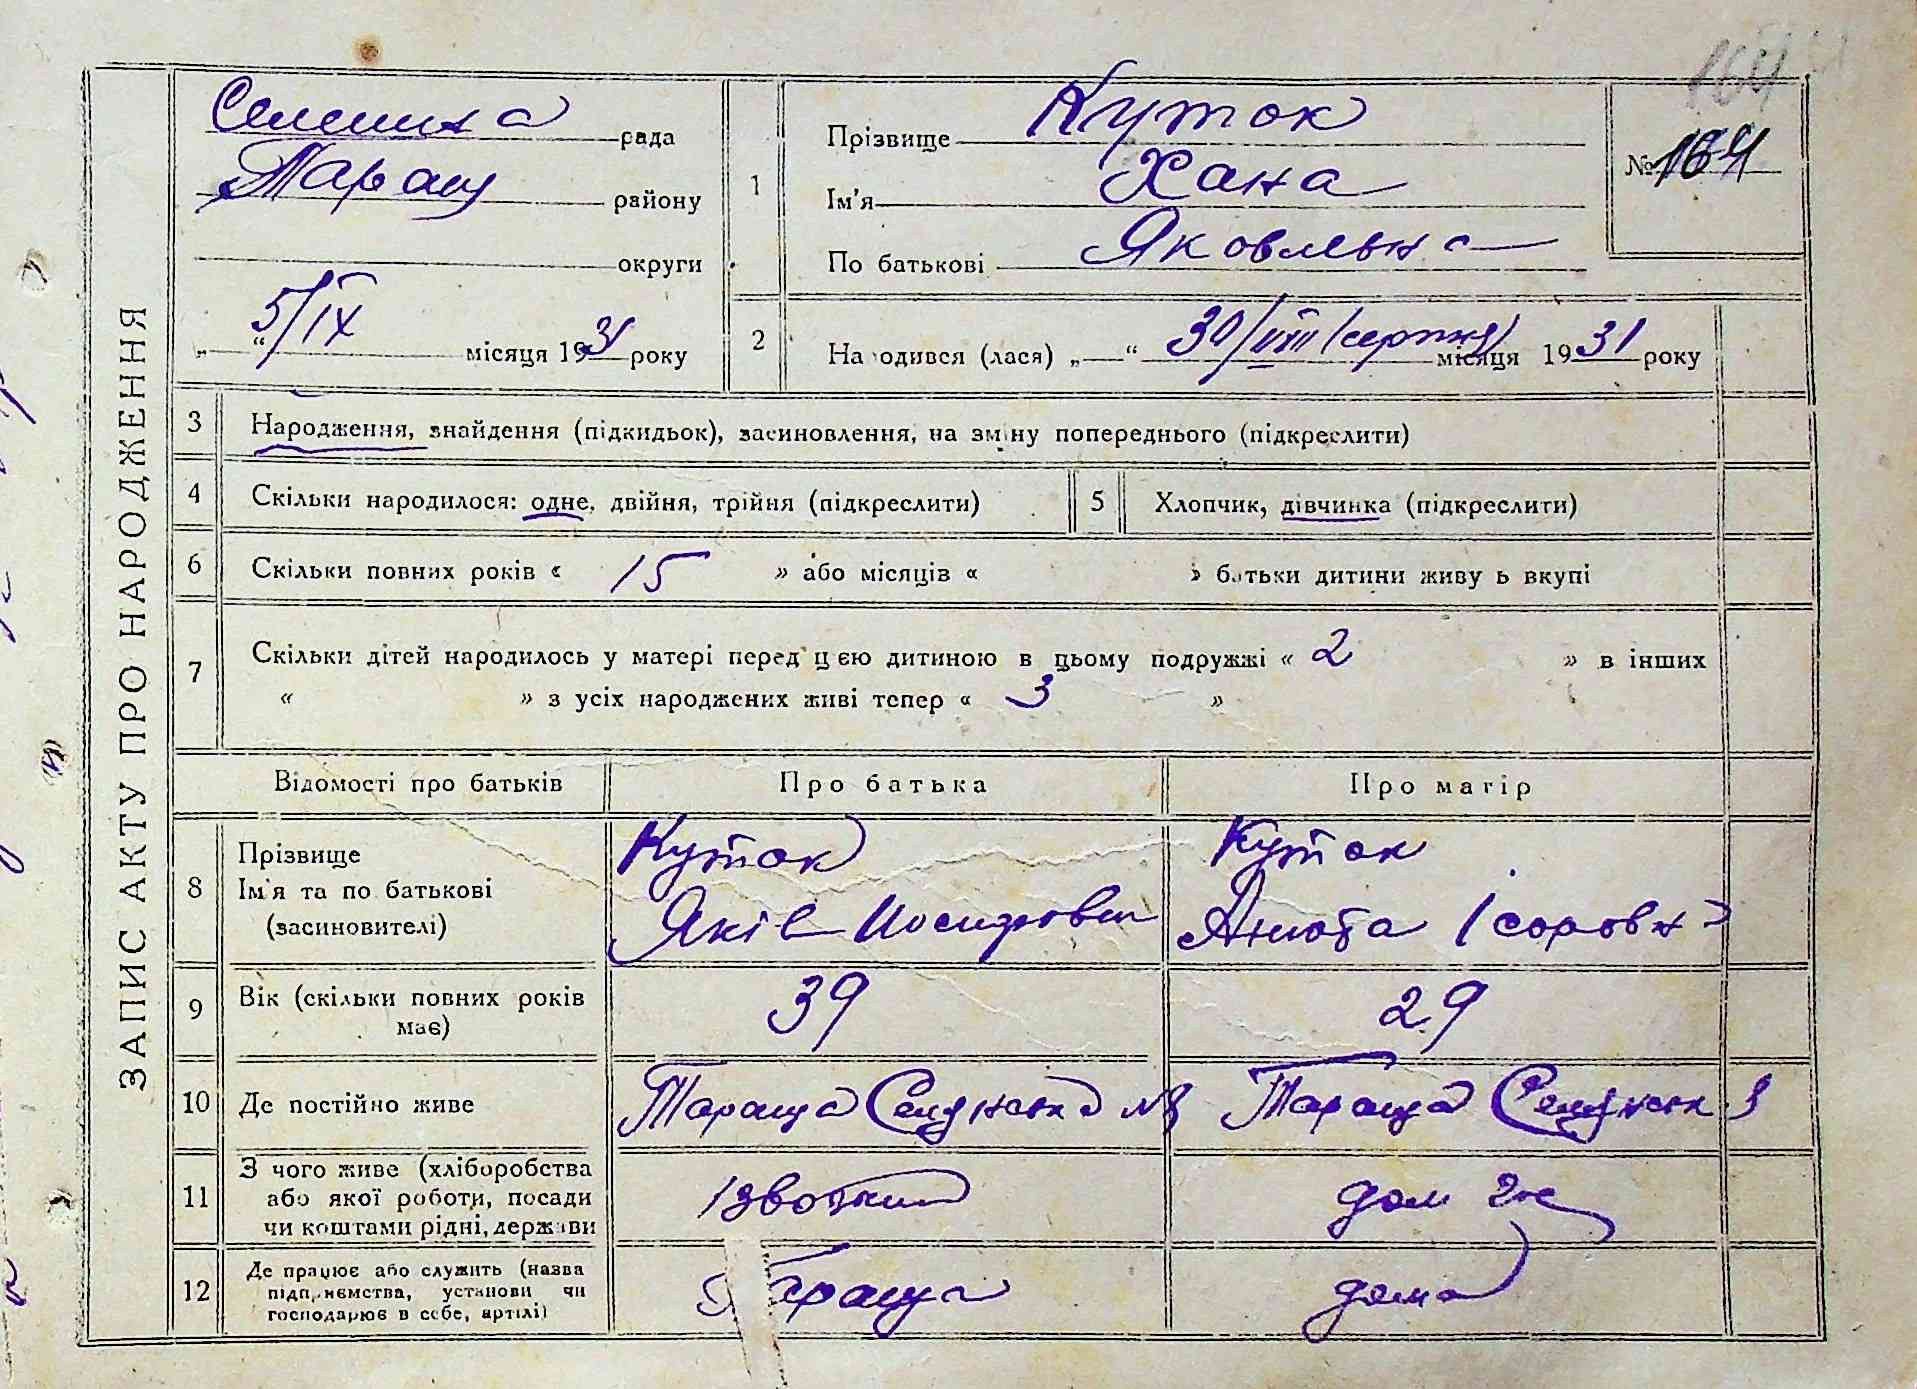 164
ЗАПИС АКТУ ПРО НАРОДЖЕННЯ
Селешна рада
Таращ району
округи
„ 5/IX “ місяця 1931 року
1
Прізвище Куток
Ім'я Хана
По батькові Яковлевна
№ 164
2
Народився (лася) „ “ 30/VIII (серпня) місяця 1931 року
3 Народження, знайдення (підкидьок), засиновлення, на зміну попереднього (підкреслити)
4 Скільки народилося: одне, двійня, трійня (підкреслити)
5 Хлопчик, дівчинка (підкреслити)
6 Скільки повних років « 15 » або місяців « » батьки дитини живуть вкупі
7 Скільки дітей народилось у матері перед цією дитиною в цьому подружжі « 2 » в інших
« » з усіх народжених живі тепер « 3 »
Відомості про батьків Про батька Про матір
8 Прізвище
Ім'я та по батькові
(засиновителі)
Куток
Яків Иосифович
Куток
Анюта Ісоровна
9 Вік (скільки повних років
має)
39
29
10 Де постійно живе
Тараща
Тараща
11 З чого живе (хліборобства
або якої роботи, посади
чи коштами рідні, держави
Ізвощик
дом хоз
12 Де працює або служить (назва
підприємства, установи чи
господарює в себе, артілі)
Тараща
дома